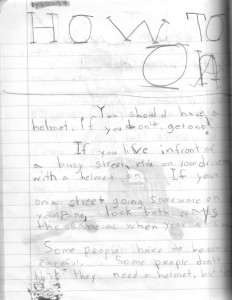 HOW TO
You should have a
helmet, if you don't, get one
If you live infront of
a busy street, ride on your drive
with a helmet on. If your
on a street going somewhere on
your bike, look both ways
the same as when you
Some people have to be
Some people don't
they need a helmet, but